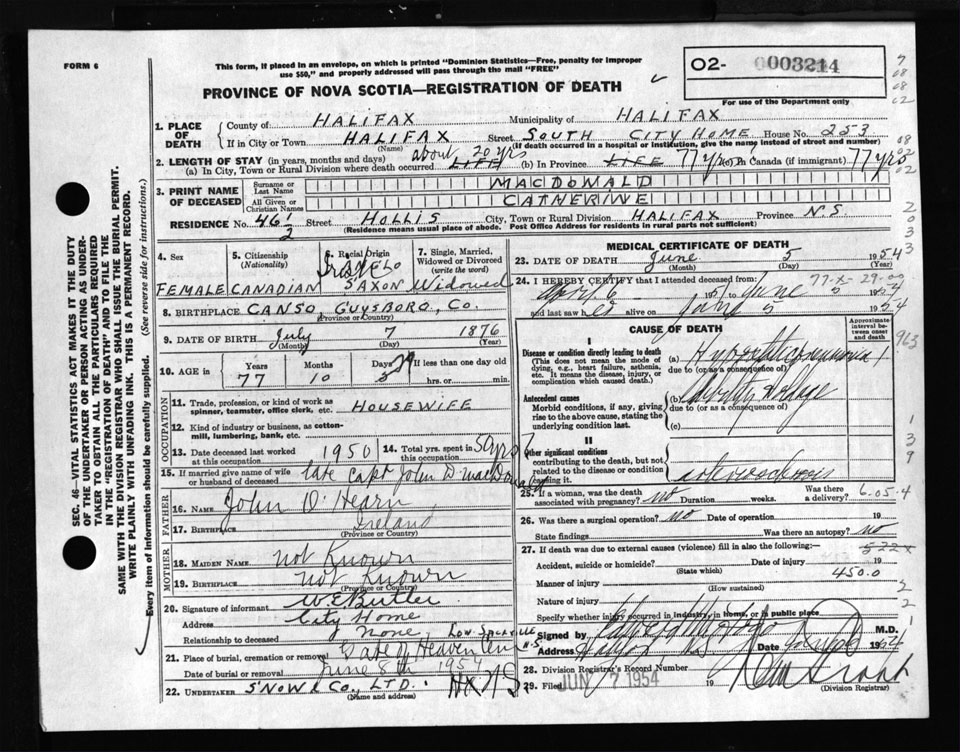 FORM 6
This form, if placed in an envelope, on which is printed "Dominion Statistics—Free, penalty for improper
use $50," and properly addressed will pass through the mail "FREE"
O2- 0003214
For use of the Department only
PROVINCE OF NOVA SCOTIA—REGISTRATION OF DEATH
1. PLACE OF DEATH
County of HALIFAX Municipality of HALIFAX
If in City or Town HALIFAX Street SOUTH CITY HOME House No. 253
(Name) (If death occurred in a hospital or institution, give the name instead of street and number)
2. LENGTH OF STAY (in years, months and days)
(a) In City, Town or Rural Division where death occurred about 20 yrs LIFE (b) In Province LIFE 77 yrs In Canada (if immigrant) 77 yrs
3. PRINT NAME OF DECEASED
Surname or Last Name MACDONALD
All Given or Christian Names CATHERINE
RESIDENCE No. 46 1/2 Street HOLLIS City, Town or Rural Division HALIFAX Province N.S.
(Residence means usual place of abode. Post Office Address for residents in rural parts not sufficient)
4. Sex FEMALE
5. Citizenship (Nationality) CANADIAN
6. Racial Origin SAXON
7. Single, Married, Widowed or Divorced (write the word) Widowed
8. BIRTHPLACE CANSO, GUYSBORO, CO.
(Province or Country)
9. DATE OF BIRTH July 7 1876
(Month) (Day) (Year)
10. AGE IN Years 77 Months 10 Days 29 If less than one day old
hrs. or min.
OCCUPATION
11. Trade, profession, or kind of work as
spinner, teamster, office clerk, etc. HOUSEWIFE
12. Kind of industry or business, as cotton-
mill, lumbering, bank, etc.
13. Date deceased last worked
at this occupation 1950
14. Total yrs. spent in
this occupation 50 yrs
15. If married give name of wife
or husband of deceased late Capt John D MacDonald
FATHER
16. NAME John O'Hearn
17. BIRTHPLACE Ireland
(Province or Country)
MOTHER
18. MAIDEN NAME not Known
19. BIRTHPLACE not Known
(Province or Country)
20. Signature of informant W.E. Butler
Address City Home
Relationship to deceased None
21. Place of burial, cremation or removal Gate of Heaven Cem Low. Sackville N.S.
Date of burial or removal June 8th 1954
22. UNDERTAKER SNOW & CO., LTD. HX NS
(Name and address)
MEDICAL CERTIFICATE OF DEATH
23. DATE OF DEATH June 5 1954
(Month) (Day) (Year)
24. I HEREBY CERTIFY that I attended deceased from:
77-X-29-00
April 6 195 June 5 1954
and last saw her alive on June 5 1954
CAUSE OF DEATH
Approximate interval between onset and death
I
Disease or condition directly leading to death
(This does not mean the mode of
dying, e.g., heart failure, asthenia,
etc. It means the disease, injury, or
complication which caused death.)
(a) Hypostatic pneumonia
due to (or as a consequence of)
Antecedent causes
Morbid conditions, if any, giving
rise to the above cause, stating the
underlying condition last.
(b) debility old age
due to (or as a consequence of)
(c)
II
Other significant conditions
contributing to the death, but not
related to the disease or condition
causing it.
arteriosclerosis
25. If a woman, was the death
associated with pregnancy? no Duration weeks. Was there
a delivery? 6.05.4
26. Was there a surgical operation? No Date of operation 19
State findings Was there an autopsy? no
27. If death was due to external causes (violence) fill in also the following:— 522x
Accident, suicide or homicide? Date of injury 19
(State which)
450.0
Manner of injury
(How sustained)
Nature of injury
Specify whether injury occurred in industry, in home, or in public place
Signed by M.D.
Address Halifax N.S. Date 1954
28. Division Registrar's Record Number
29. Filed JUN 7 1954 19
(Division Registrar)
SEC. 46—VITAL STATISTICS ACT MAKES IT THE DUTY
OF THE UNDERTAKER OR PERSON ACTING AS UNDER-
TAKER TO OBTAIN ALL THE PARTICULARS REQUIRED
IN THE "REGISTRATION OF DEATH" AND TO FILE THE
SAME WITH THE DIVISION REGISTRAR WHO SHALL ISSUE THE BURIAL PERMIT.
WRITE PLAINLY WITH UNFADING INK. THIS IS A PERMANENT RECORD.
Every item of information should be carefully supplied. (See reverse side for instructions.)